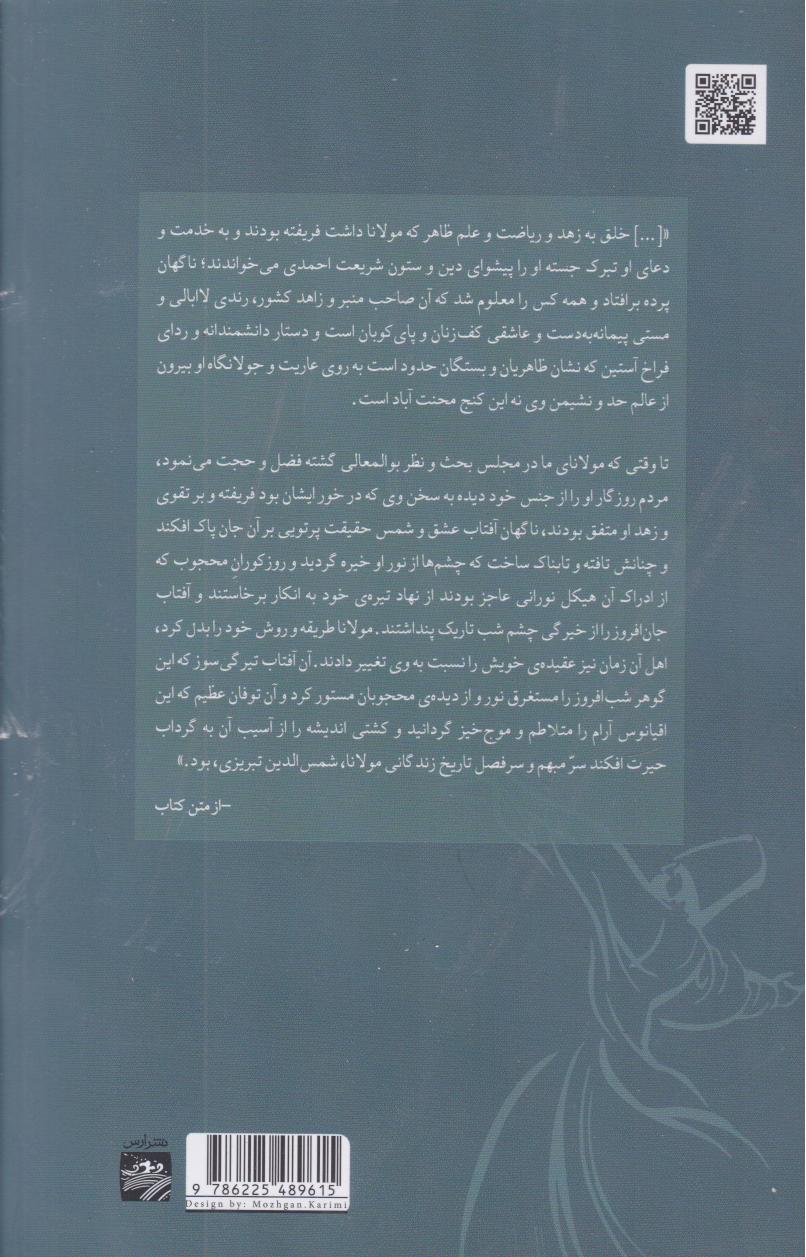 «[...] خلق به زهد و ریاضت و علم ظاهر که مولانا داشت فریفته بودند و به خدمت و
دعای او تبرک جسته او را پیشوای دین و ستون شریعت احمدی می‌خواندند؛ ناگهان
پرده برافتاد و همه کس را معلوم شد که آن صاحب منبر و زاهد کشور، رندی لاابالی و
مستی پیمانه‌به‌دست و عاشقی کف‌زنان و پای‌کوبان است و دستار دانشمندانه و ردای
فراخ آستین که نشان ظاهریان و بستگان حدود است به روی عاریت و جولانگاه او بیرون
از عالم حد و نشیمن وی نه این کنج محنت آباد است.
تا وقتی که مولانای ما در مجلس بحث و نظر بوالمعالی گشته فضل و حجت می‌نمود،
مردم روزگار او را از جنس خود دیده به سخن وی که در خور ایشان بود فریفته و بر تقوی
و زهد او متفق بودند، ناگهان آفتاب عشق و شمس حقیقت پرتویی بر آن جان پاک افکند
و چنانش تافته و تابناک ساخت که چشم‌ها از نور او خیره گردید و روزکورانِ محجوب که
از ادراک آن هیکل نورانی عاجز بودند از نهاد تیره‌ی خود به انکار برخاستند و آفتاب
جان‌افروز را از خیرگی چشم شب تاریک پنداشتند. مولانا طریقه و روش خود را بدل کرد،
اهل آن زمان نیز عقیده‌ی خویش را نسبت به وی تغییر دادند. آن آفتاب تیرگی‌سوز که این
گوهر شب‌افروز را مستغرق نور و از دیده‌ی محجوبان مستور کرد و آن توفان عظیم که این
اقیانوس آرام را متلاطم و موج‌خیز گردانید و کشتی اندیشه را از آسیب آن به گرداب
حیرت افکند سرّ مبهم و سرفصل تاریخ زندگانی مولانا، شمس‌الدین تبریزی، بود.»
–از متن کتاب
نشر ارس
9 786225 489615
Design by: Mozhgan.Karimi